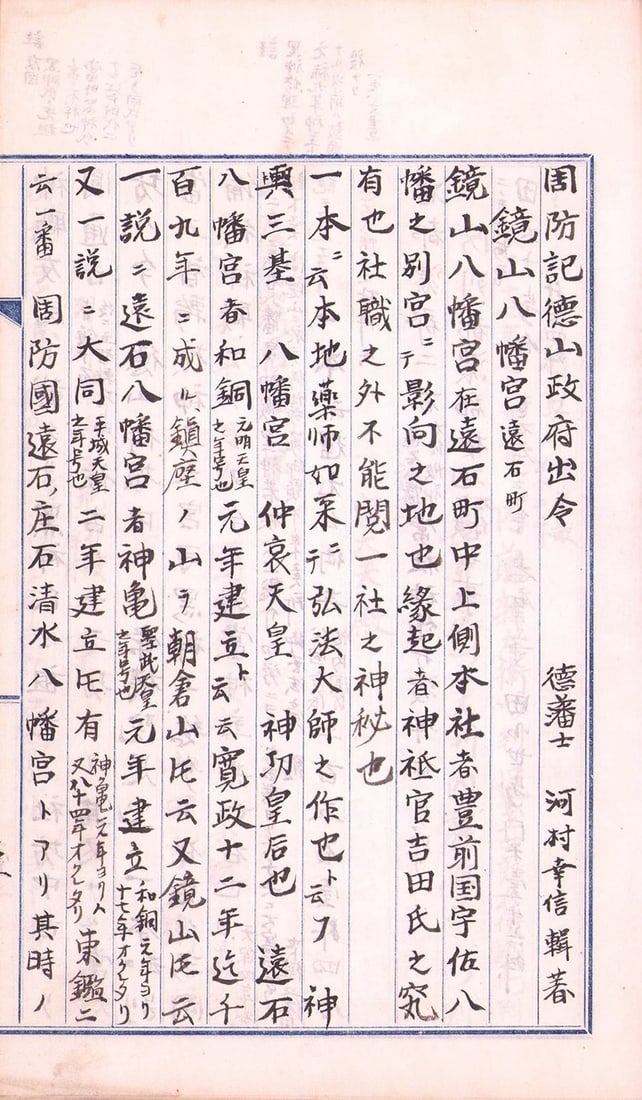 周防記德山政府出令　德藩士　河村幸信輯著
鏡山八幡宮遠石町
鏡山八幡宮在遠石町中上側本社者豊前国宇佐八
幡之別宮ニテ影向之地也緣起者神祇官吉田氏之宛
有也社職之外不能閲一社之神秘也
一本ニ云本地藥师如来ニテ弘法大師之作也ト云フ神
輿三基　八幡宮　仲哀天皇　神功皇后也　遠石
八幡宮者和銅元明天皇之年号也元年建立ト云云寬政十二年迄千
百九年ニ成ル鎮座ノ山ヲ朝倉山圧云又鏡山圧云
一説ニ遠石八幡宮者神亀聖武天皇之年号也元年建立和銅元年ヨリ十七年オクレタリ
又一説ニ大同平城天皇之年号也二年建立圧有神亀元年ヨリハ又八十四年オクレタリ東鑑ニ
云一番　周防國遠石庄石清水八幡宮トアリ其時ノ